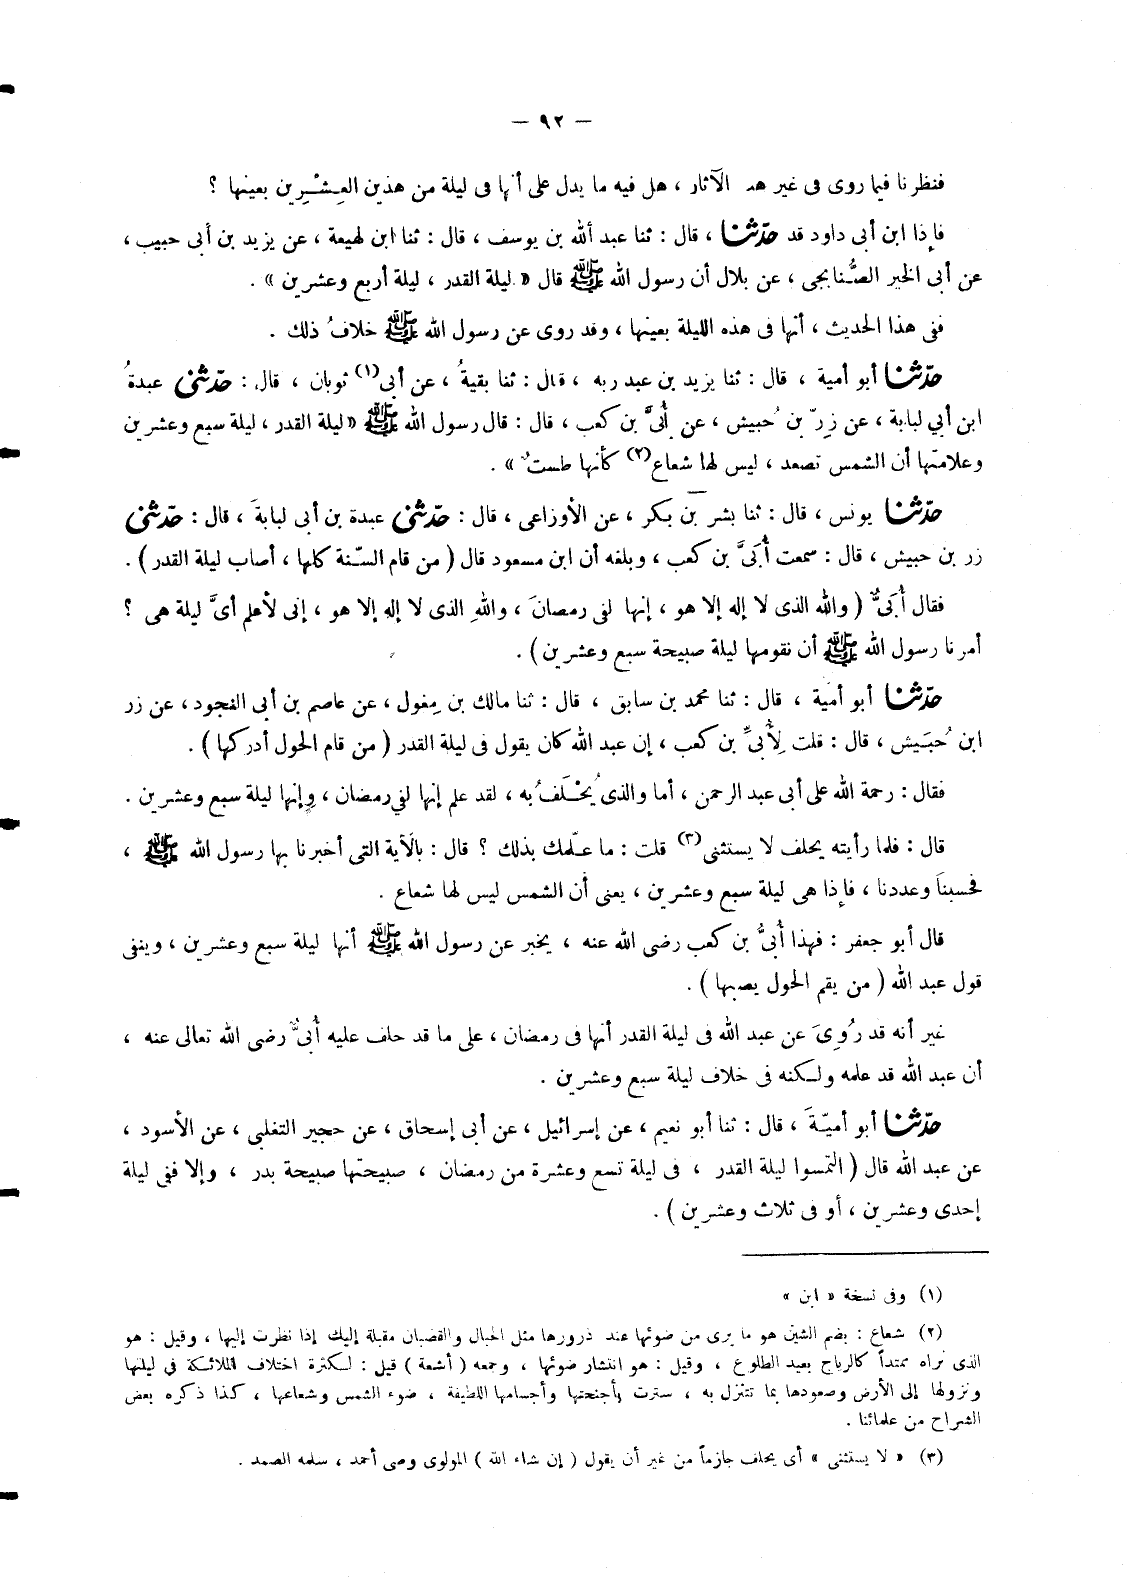 — ٩٢ —
فنظرنا فيما روى فى غير هذه الآثار ، هل فيه ما يدل على أنها فى ليلة من هذين العِشْرِين بعينها ؟
فإذا ابن أبى داود قد حدّثنا ، قال : ثنا عبد الله بن يوسف ، قال : ثنا ابن لهيعة ، عن يزيد بن أبى حبيب ،
عن أبى الخير الصُّنابحى ، عن بلال أن رسول الله ﷺ قال « ليلة القدر ، ليلة أربع وعشرين » .
ففى هذا الحديث ، أنها فى هذه الليلة بعينها ، وقد روى عن رسول الله ﷺ خلافُ ذلك .
حدّثنا أبو أمية ، قال : ثنا يزيد بن عبد ربه ، قال : ثنا بقيةُ ، عن أبى(١) ثوبان ، قال : حدّثنى عبدةُ
ابن أبي لبابة ، عن زِرّ بن حُبيش ، عن أُبَىَّ بن كعب ، قال : قال رسول الله ﷺ « ليلة القدر ، ليلة سبع وعشرين
وعلامتها أن الشمس تصعد ، ليس لها شعاع(٢) كأنها طستٌ » .
حدّثنا يونس ، قال : ثنا بشر بن بكر ، عن الأوزاعى ، قال : حدّثنى عبدة بن أبى لبابةَ ، قال : حدّثنى
زر بن حبيش ، قال : سمعت أُبَىَّ بن كعب ، وبلغه أن ابن مسعود قال ( من قام السّنة كلها ، أصاب ليلة القدر ) .
فقال أُبَىٌّ ( والله الذى لا إله إلا هو ، إنها لفى رمضانَ ، واللهِ الذى لا إله إلا هو ، إنى لأعلم أىَّ ليلة هى ؟
أمرنا رسول الله ﷺ أن نقومها ليلة صبيحة سبع وعشرين ) .
حدّثنا أبو أمَية ، قال : ثنا محمد بن سابق ، قال : ثنا مالك بن مِغول ، عن عاصم بن أبى النجود ، عن زر
ابن حُبَيش ، قال : قلت لِأُبىِّ بن كعب ، إن عبد الله كان يقول فى ليلة القدر ( من قام الحول أدركها ) .
فقال : رحمة الله على أبى عبد الرحمن ، أما والذى يُحْلَفُ به ، لقد علم إنها لفي رمضان ، وإنها ليلة سبع وعشرين .
قال : فلما رأيته يحلف لا يستثنى(٣) قلت : ما علّمك بذلك ؟ قال : بالآية التى أخبرنا بها رسول الله ﷺ ،
فحسبنا وعددنا ، فإذا هى ليلة سبع وعشرين ، يعنى أن الشمس ليس لها شعاع .
قال أبو جعفر : فهذا أُبىُّ بن كعب رضى الله عنه ، يخبر عن رسول الله ﷺ أنها ليلة سبع وعشرين ، وينفى
قول عبد الله ( من يقم الحول يصبها ) .
غير أنه قد رُوِىَ عن عبد الله فى ليلة القدر أنها فى رمضان ، على ما قد حلف عليه أُبىٌّ رضى الله تعالى عنه ،
أن عبد الله قد علمه ولكنه فى خلاف ليلة سبع وعشرين .
حدّثنا أبو أميّةَ ، قال : ثنا أبو نعيم ، عن إسرائيل ، عن أبى إسحاق ، عن حجير التغلبى ، عن الأسود ،
عن عبد الله قال ( التمسوا ليلة القدر ، فى ليلة تسع وعشرة من رمضان ، صبيحتها صبيحة بدر ، وإلا ففى ليلة
إحدى وعشرين ، أو فى ثلاث وعشرين ) .
(١) وفى نسخة « ابن »
(٢) شعاع : بضم الشين هو ما يرى من ضوئها عند ذرورها مثل الحبال والقضبان مقبلة إليك إذا نظرت إليها ، وقيل : هو
الذى تراه ممتداً كالرماح بعيد الطلوع ، وقيل : هو انتشار ضوئها ، وجمعه ( أشعة ) قيل : لكثرة اختلاف الملائكة في ليلتها
ونزولها إلى الأرض وصعودها بما تتنزل به ، سترت بأجنحتها وأجسامها اللطيفة ، ضوء الشمس وشعاعها ، كذا ذكره بعض
الشراح من علمائنا .
(٣) « لا يستثنى » أى يحلف جازماً من غير أن يقول ( إن شاء الله ) المولوى وصى أحمد ، سلمه الصمد .